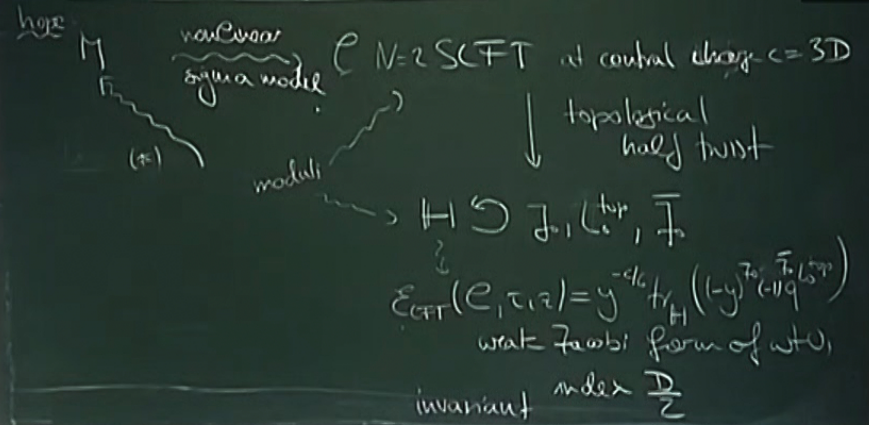 hope
M nonlinear sigma model C N=2 SCFT at central charge c=3D
topological
half twist
(*)
moduli
H ↺ J₀, L₀^top, J̄₀
ε_CFT(C,τ,z) = y^{-c/6} tr_H((-y)^{J₀} (-1)^{J̄₀} q^{L₀^top})
weak Jacobi form of wt 0,
invariant index D/2